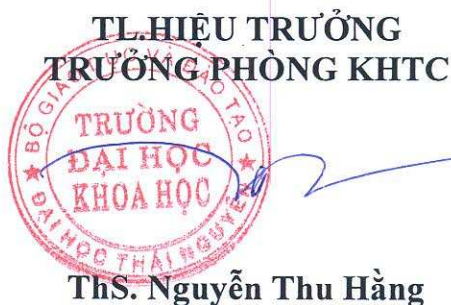 TL.HIỆU TRƯỞNG
TRƯỞNG PHÒNG KHTC
BỘ GIÁO DỤC VÀ ĐÀO TẠO
TRƯỜNG
ĐẠI HỌC
KHOA HỌC
ĐẠI HỌC THÁI NGUYÊN
ThS. Nguyễn Thu Hằng